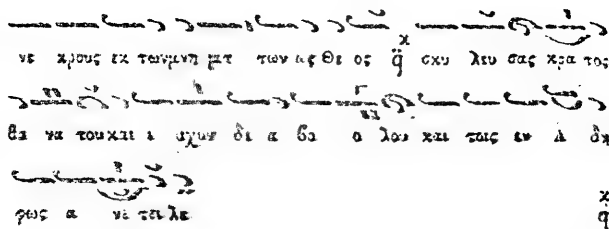 νε κρους εκ των μνη μα των ως Θε ος q̈ σκυ λευ σας κρα τος
θα να του και ι σχυν δι α βο ο λου και τοις εν Α δη
φως α νε τει λε q̈